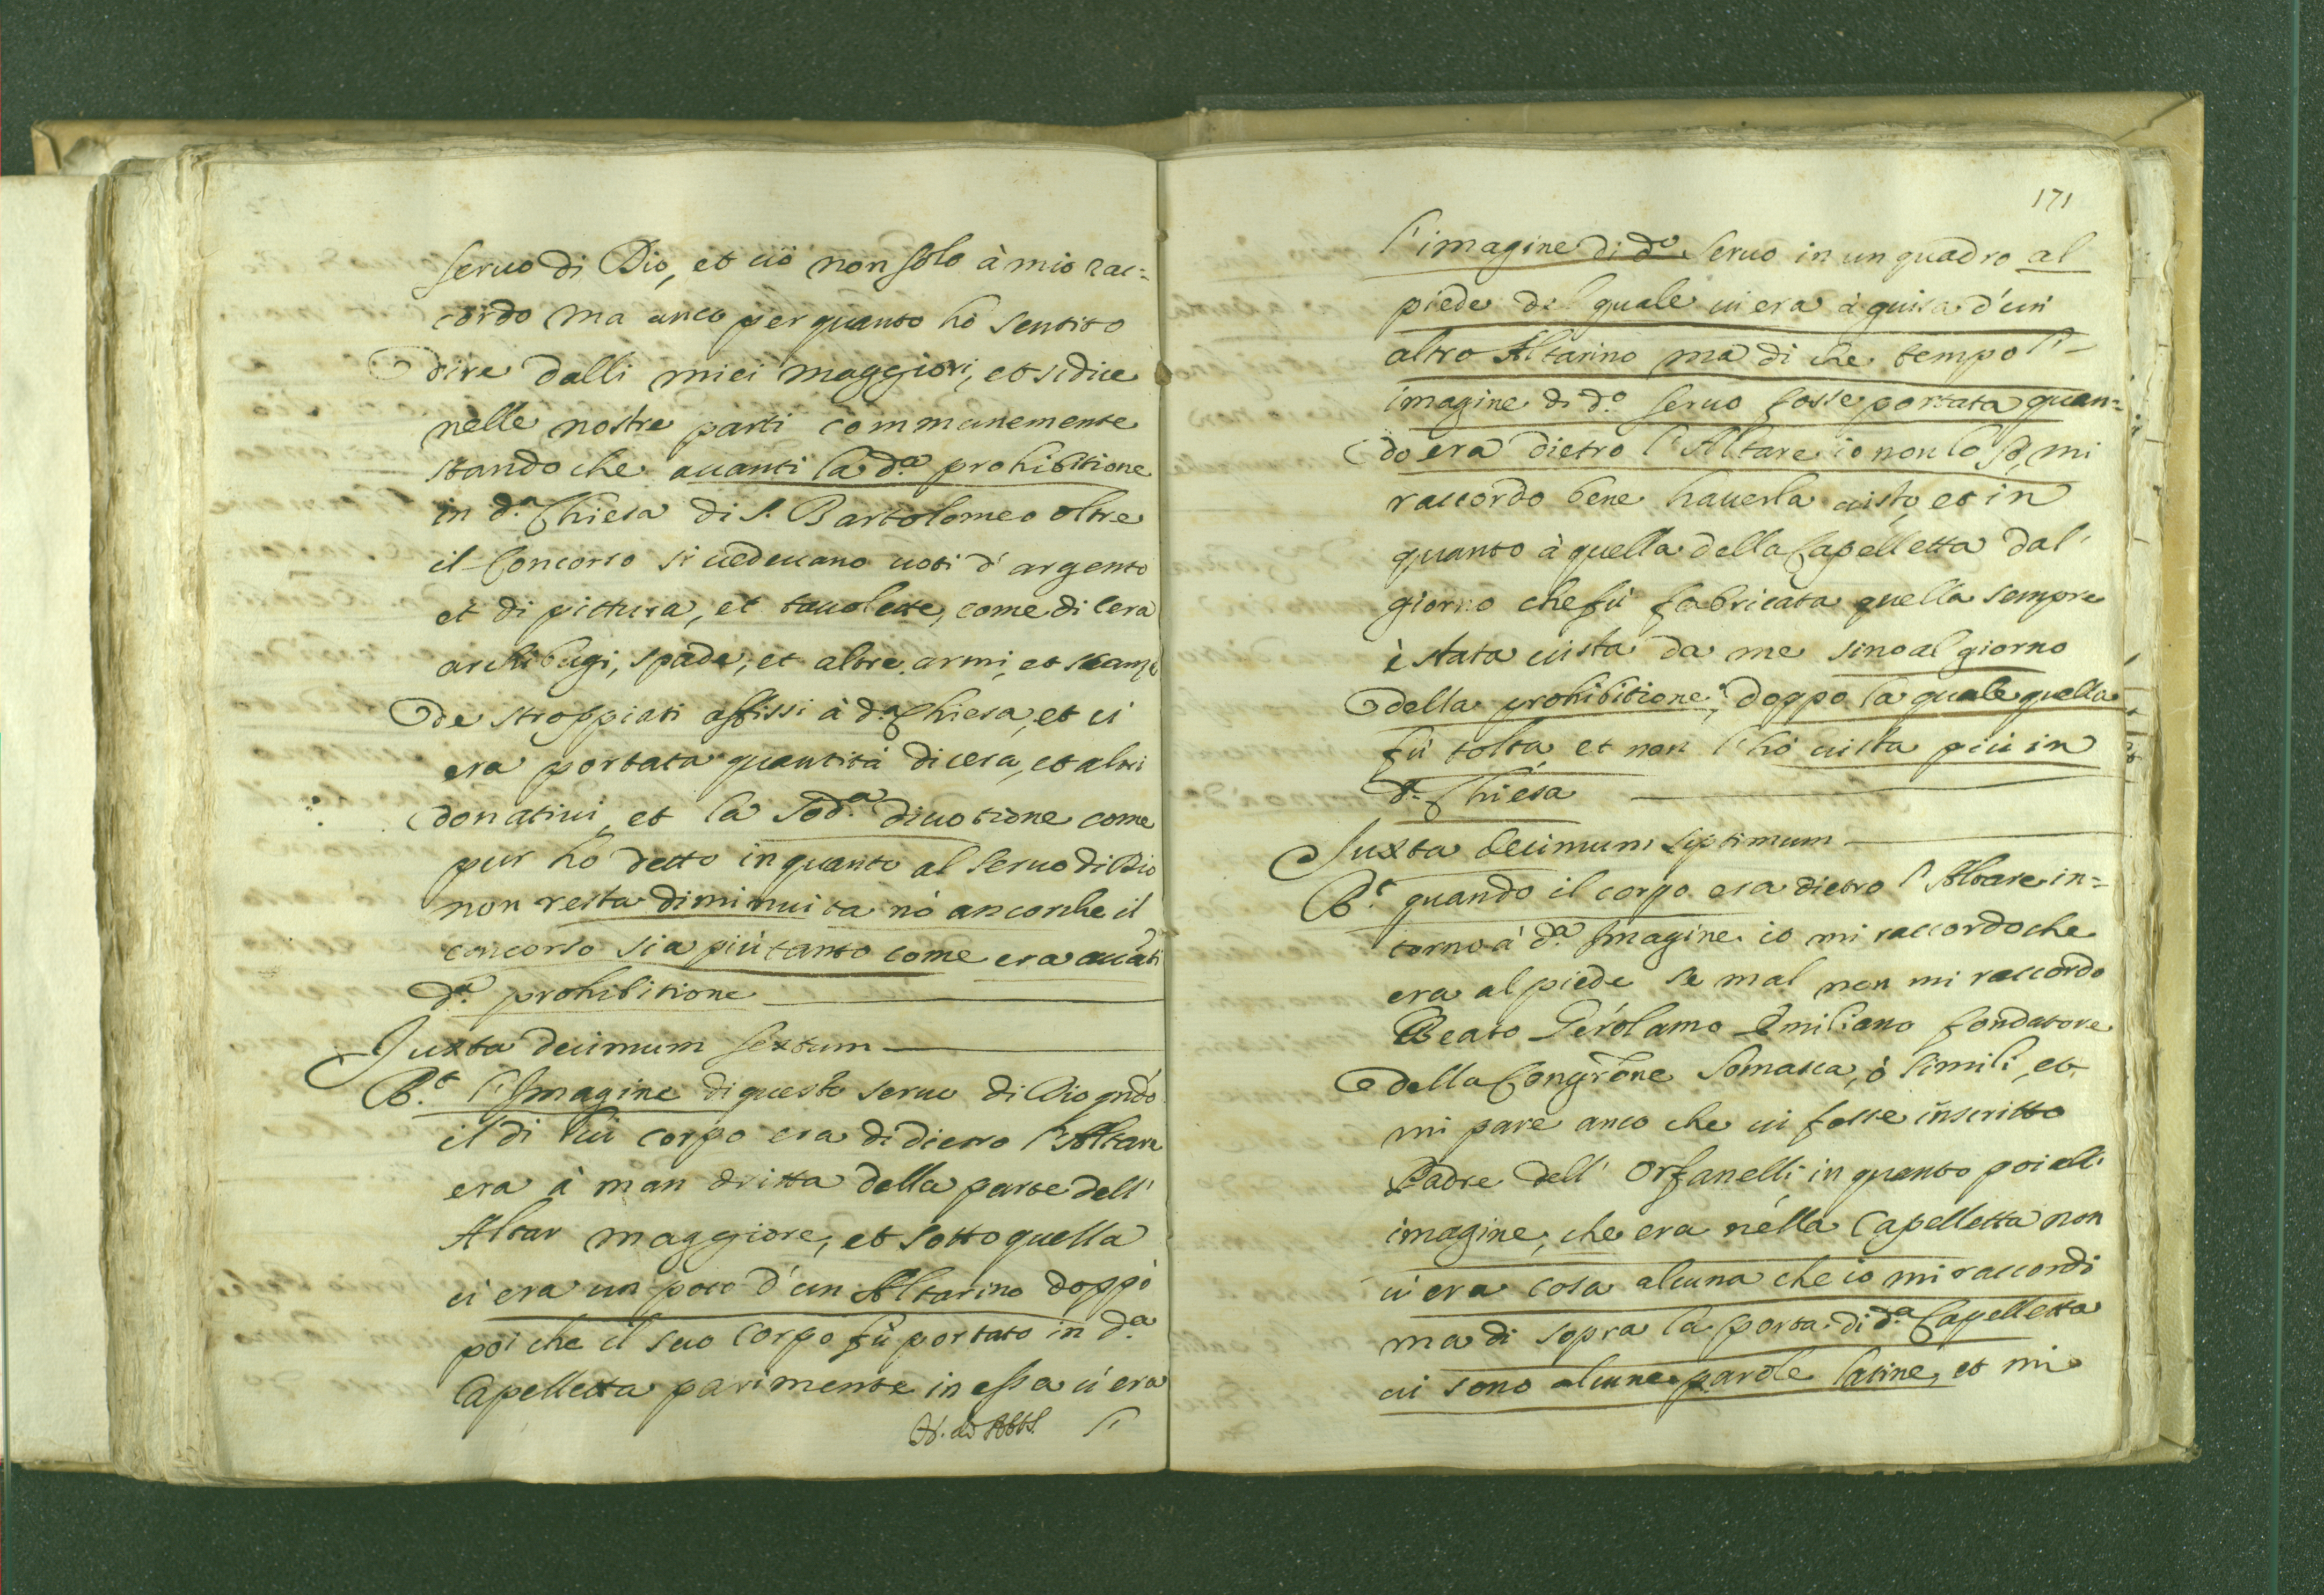 seruo di Dio, et ciò non solo à mio rac=
cordo ma anco per quanto hò sentito
dire dalli miei maggiori, et si dice
nelle nostre parti communemente
stando che auanti la d.ª prohibitione
in d.ª Chiesa di S. Bartolomeo oltre
il concorso si uedeuano uoti d'argento
et di pittura, et tauolette, come di cera
archibugi, spade, et altre armi, et scanz
de stroppiati affissi à d.ª Chiesa, et ui
era portata quantità di cera, et altri
donatiui, et la sod.ª diuotione come
pur hò detto in quanto al seruo di Dio
non resta diminuita nò ancorche il
concorso sia più tanto come era auãti
d.ª prohibitione
Juxta decimum sextum
R.t l'Imagine di questo seruo di Dio qñdo
il di lui corpo era di dietro l'Altare
era à man dritta della parte dell'
Altar maggiore, et sotto quella
ui era un poco d'un Altarino doppò
poi che il suo corpo fù portato in d.ª
Capelletta parimente in essa u'era
l'
171
l'imagine di d.º seruo in un quadro al
piede del quale ui era à guisa d'un
altro Altarino ma di che tempo l'
imagine di d.º seruo fosse portata quan=
do era dietro l'Altare io non lo sò, mi
raccordo bene hauerla uista, et in
quanto à quella della Capelletta dal'
giorno che fù fabricata quella sempre
è stata uista da me sino al giorno
della prohibitione, doppo la quale quella
fù tolta, et non l'hò uista più in
d.ª Chiesa
Juxta decimum septimum
R.t quando il corpo era dietro l'Altare in=
torno à d.ª Imagine io mi raccordo che
era al piede se mal non mi raccordo
Beato Gerolamo Emiliano fondatore
della Congr̃one Somasca, ò simili, et
mi pare anco che ui fosse inscritto
Padre dell' Orfanelli, in quanto poi all'
imagine, che era nella Capelletta non
u'era cosa alcuna che io mi raccordi
ma di sopra la porta di d.ª Capelletta
ui sono alcune parole latine, et mi